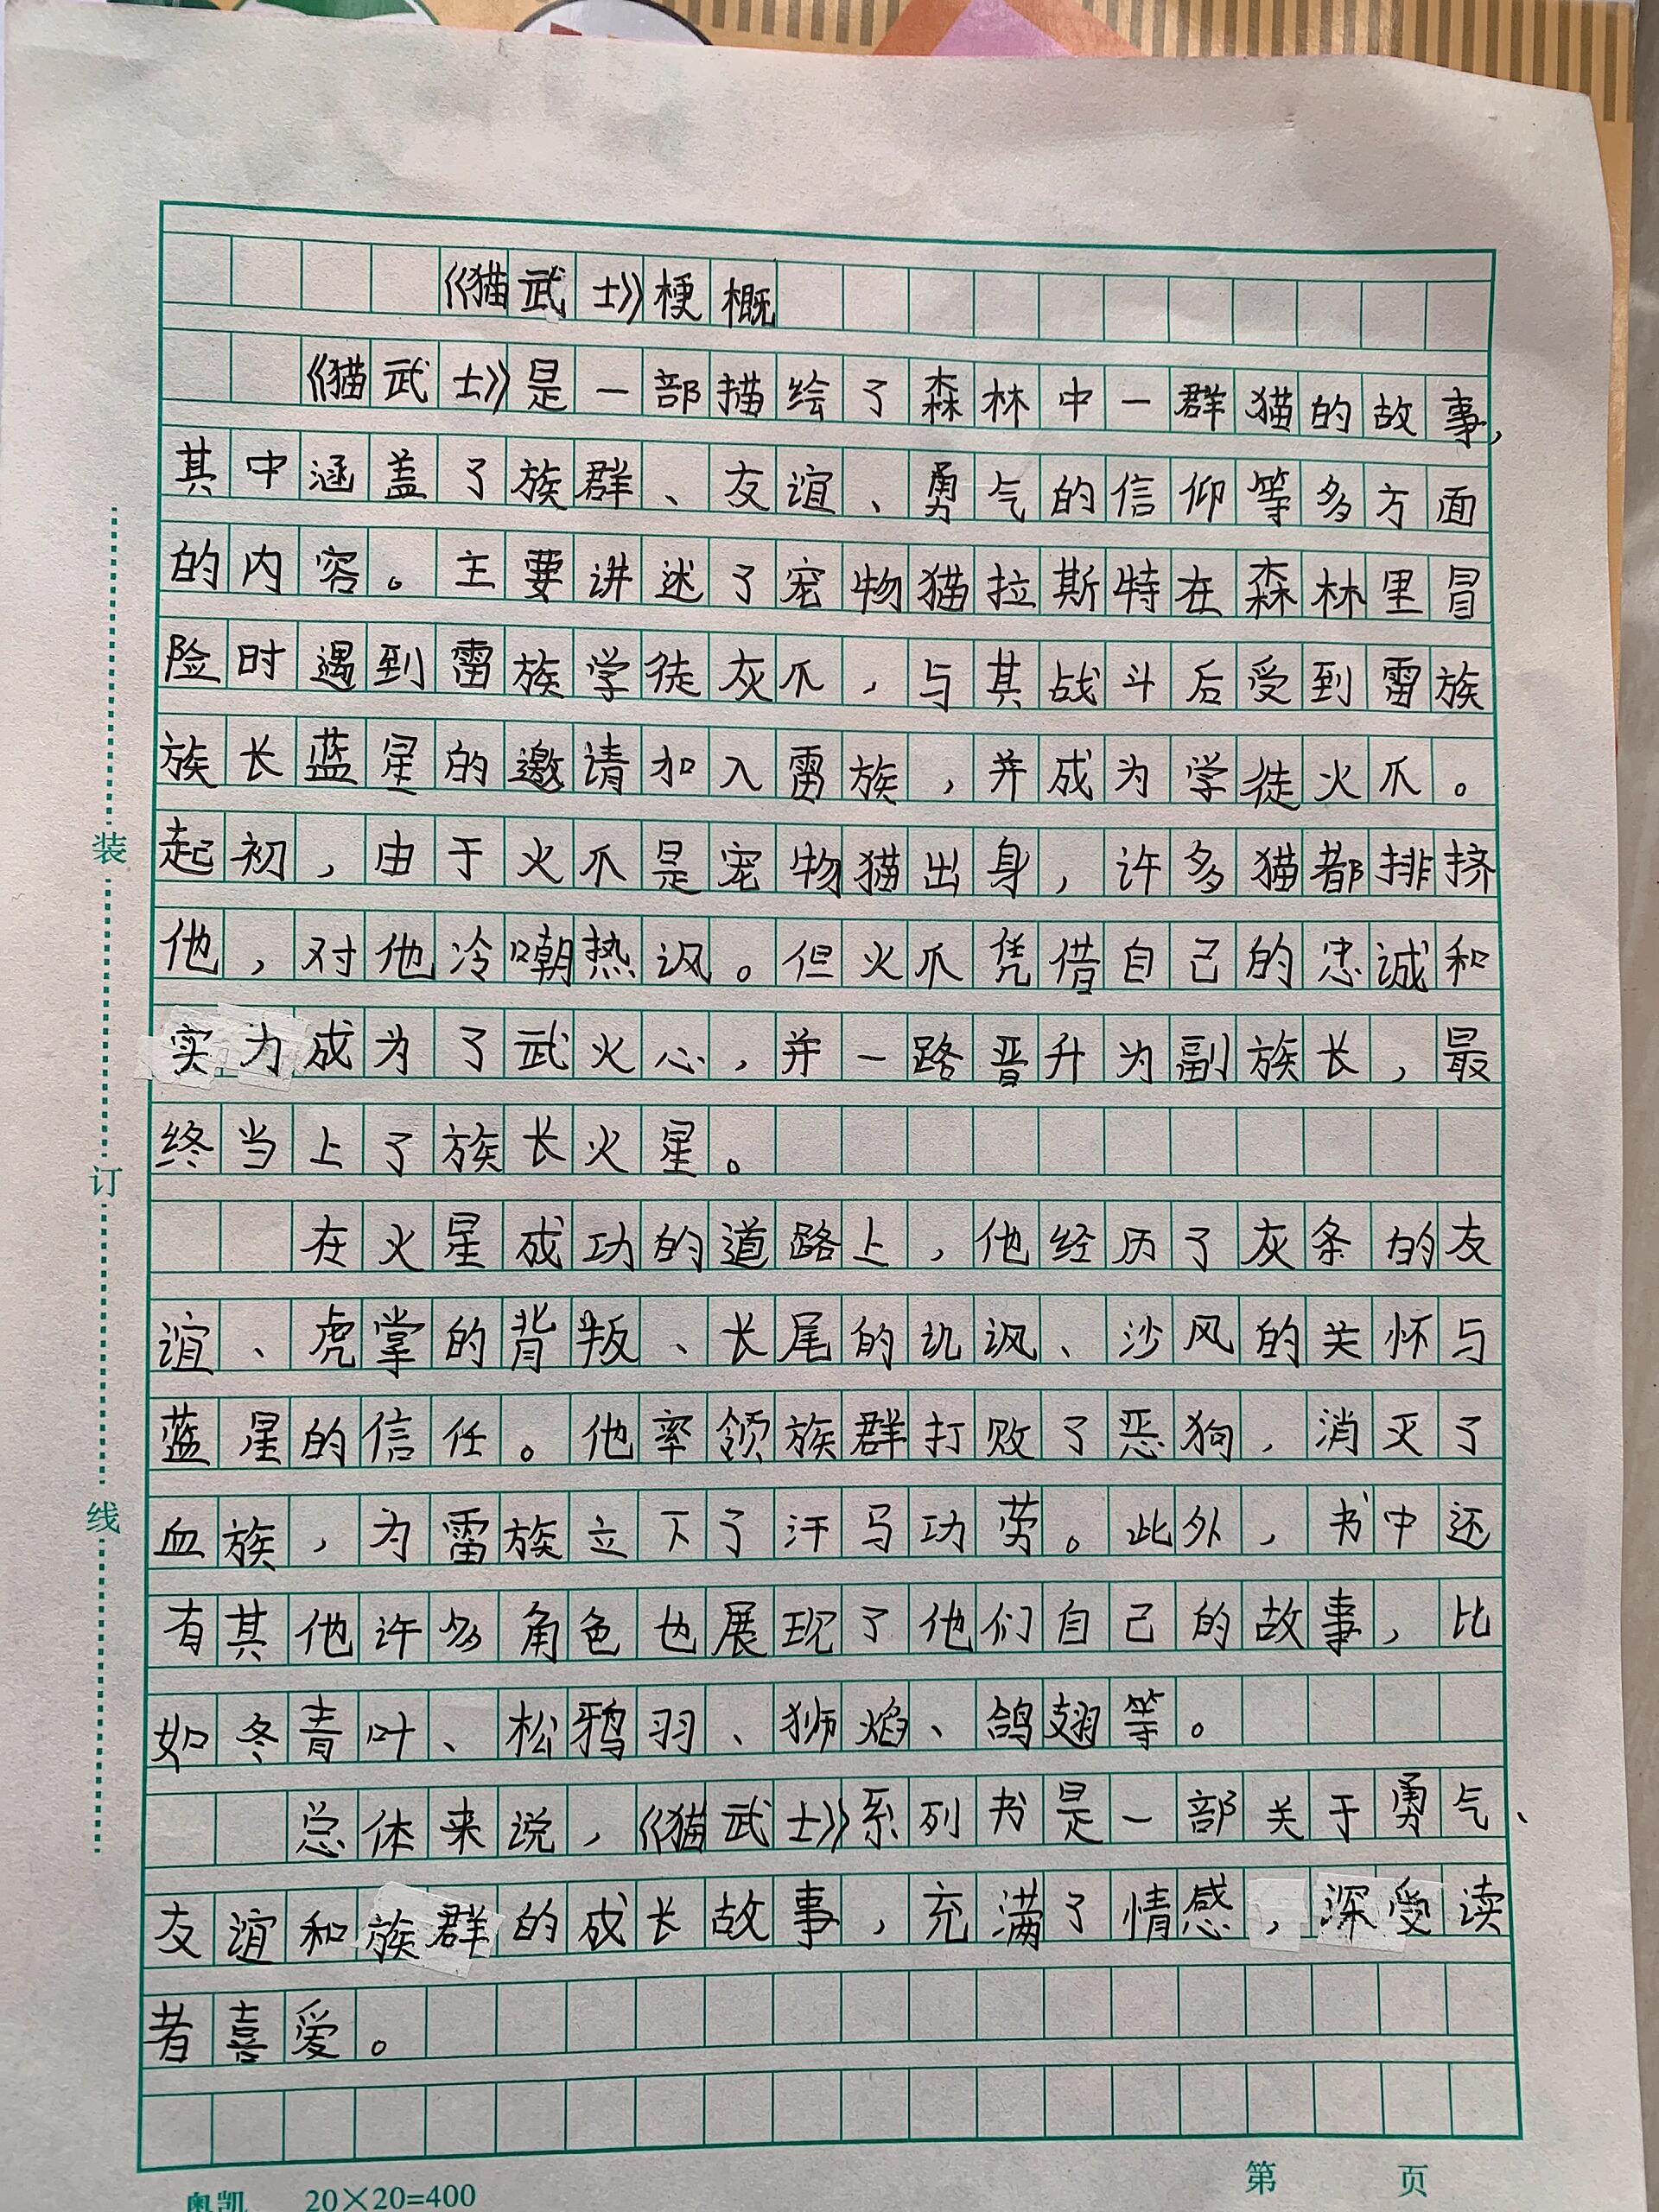 《猫武士》梗概
《猫武士》是一部描绘了森林中一群猫的故事,
其中涵盖了族群、友谊、勇气的信仰等多方面
的内容。主要讲述了宠物猫拉斯特在森林里冒
险时遇到雷族学徒灰爪，与其战斗后受到雷族
族长蓝星的邀请加入雷族，并成为学徒火爪。
起初，由于火爪是宠物猫出身，许多猫都排挤
他，对他冷嘲热讽。但火爪凭借自己的忠诚和
实力成为了武火心，并一路晋升为副族长，最
终当上了族长火星。
在火星成功的道路上，他经历了灰条的友
谊、虎掌的背叛、长尾的讥讽、沙风的关怀与
蓝星的信任。他率领族群打败了恶狗，消灭了
血族，为雷族立下了汗马功劳。此外，书中还
有其他许多角色也展现了他们自己的故事，比
如冬青叶、松鸦羽、狮焰、鸽翅等。
总体来说，《猫武士》系列书是一部关于勇气、
友谊和族群的成长故事，充满了情感，深受读
者喜爱。
装
订
线
奥凯 20×20=400
第 页